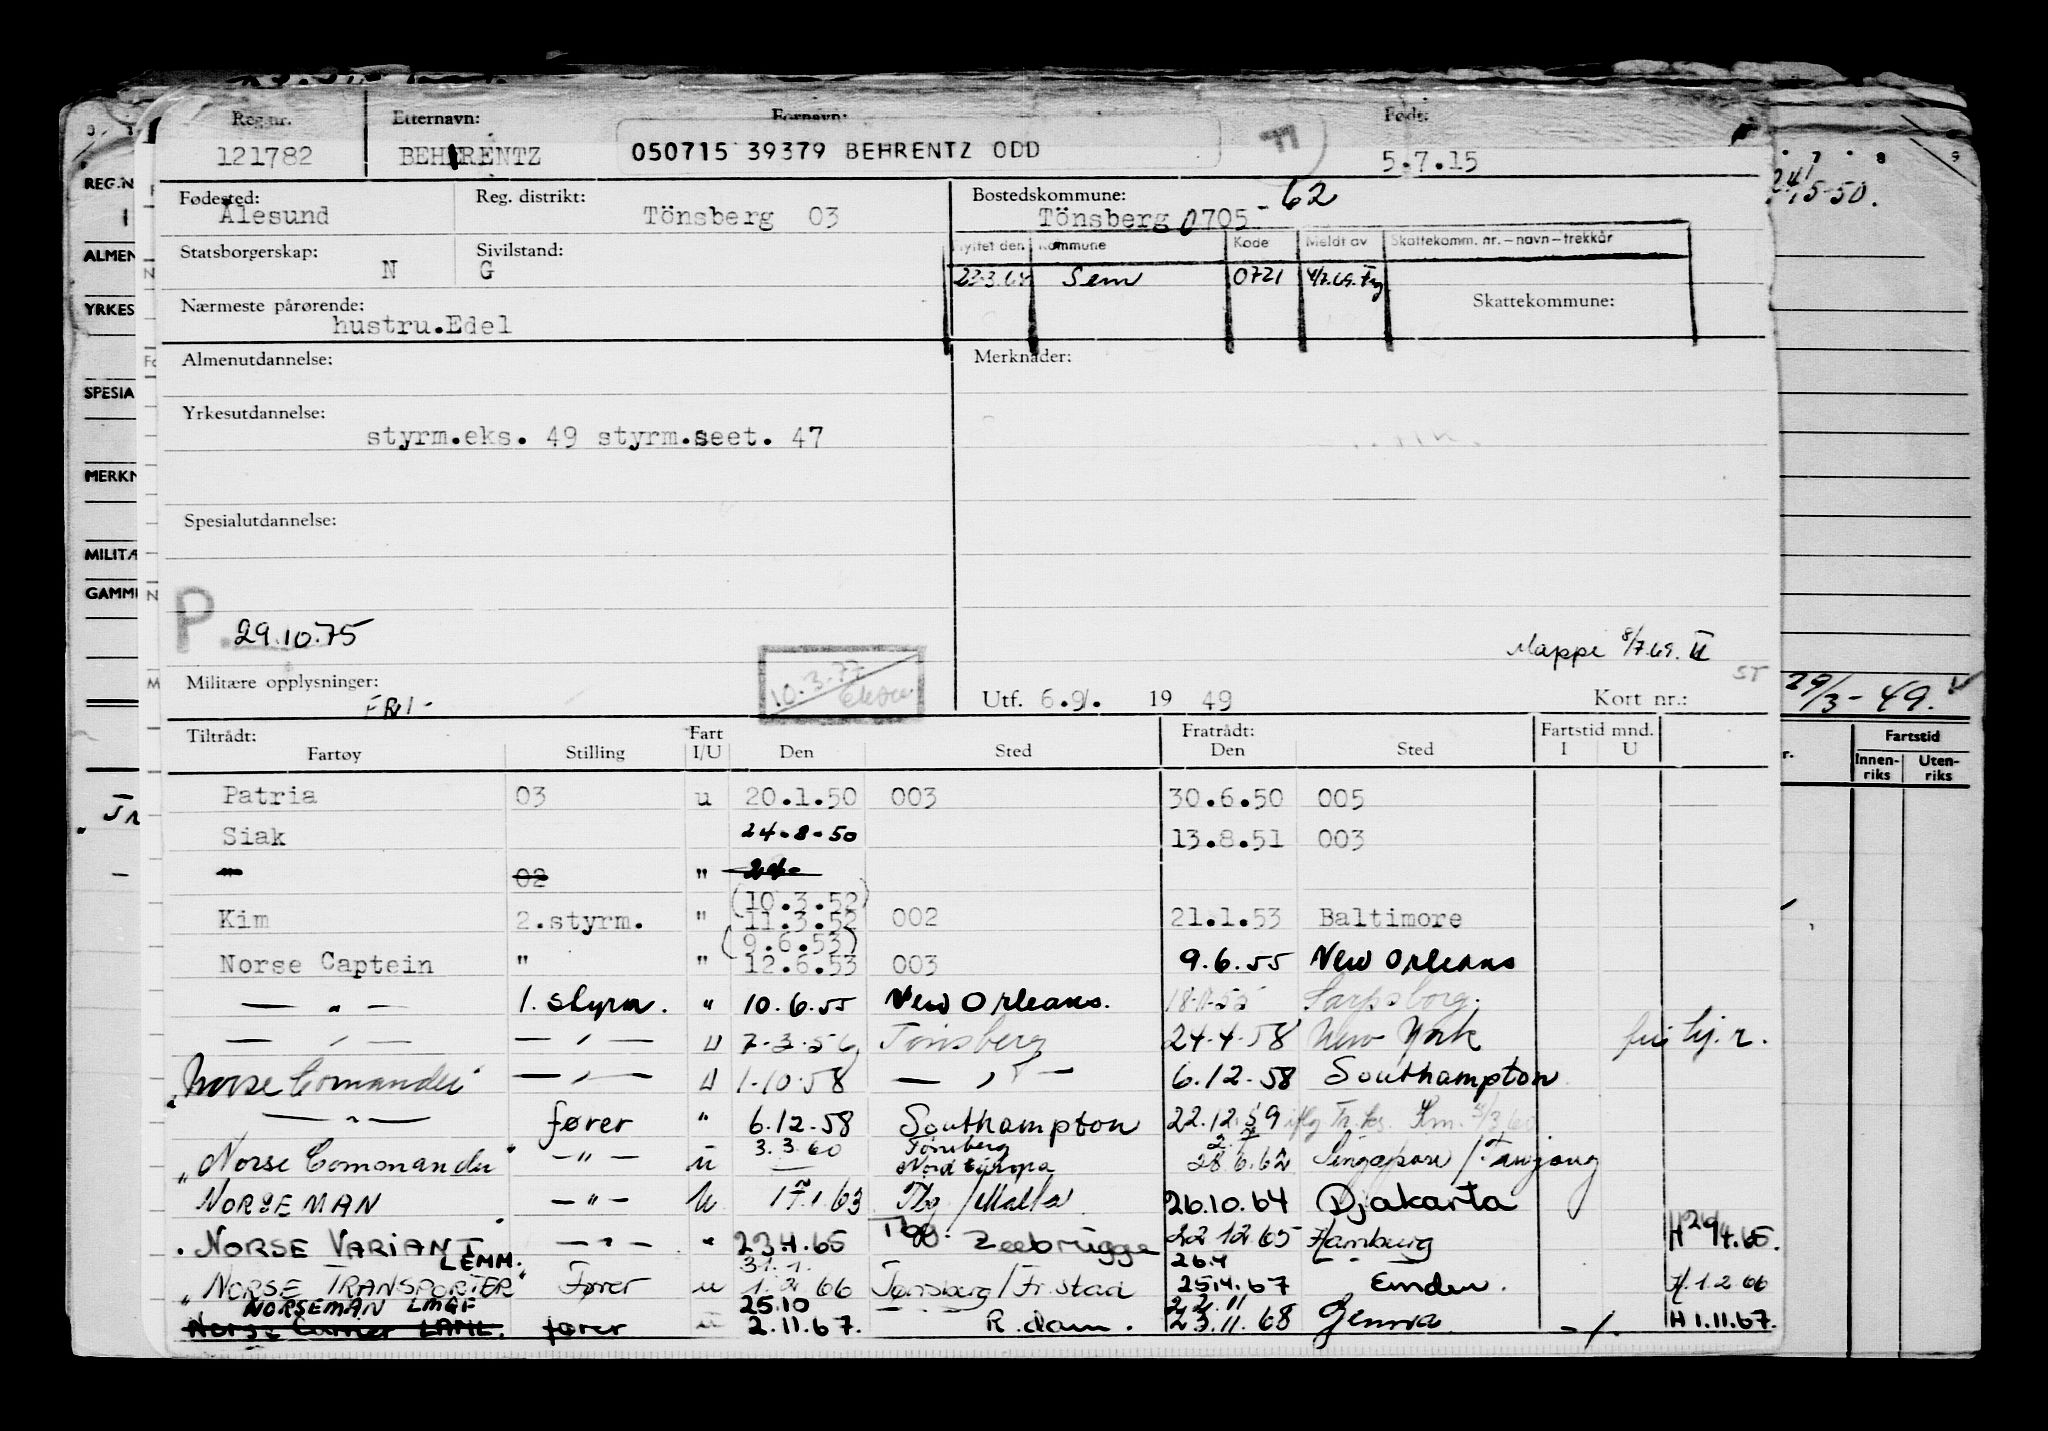 Reg.nr. Etternavn: Fornavn: Født:
121782 BEHRENTZ 050715 39379 BEHRENTZ ODD 77 5.7.15
Fødested: Reg. distrikt: Bostedskommune: 62
Ålesund Tönsberg 03 Tönsberg 0705-
Statsborgerskap: Sivilstand: flyttet den Kommune Kode Meldt av Skattekomm. nr.–navn–trekkår
N G Sem 0721
Nærmeste pårørende: Skattekommune:
hustru.Edel
Almenutdannelse: Merknader:
Yrkesutdannelse:
styrm.eks. 49 styrm.seet. 47
Spesialutdannelse:
P. 29.10.75
Mappe 8/7.69. II
ST
10.3.77
Militære opplysninger: Utf. 6.9. 19 49 Kort nr.:
FRI-
Tiltrådt: Fart Fratrådt: Fartstid mnd.
Fartøy Stilling I/U Den Sted Den Sted I U
Patria 03 u 20.1.50 003 30.6.50 005
Siak 24-8-50 13.8.51 003
" 02 "
(10.3.52)
Kim 2.styrm. " 11.3.52 002 21.1.53 Baltimore
(9.6.53)
Norse Captein " " 12.6.53 003 9.6.55 New Orleans
— " — 1. styrm. " 10.6.55 New Orleans. 18-11-55 Sarpsborg.
— " — — " — U 7-3-56 Tönsberg 24-4-58 New York fri hj. r.
"Norse Comander" — " — U 1-10-58 — " — 6.12-58 Southampton
— " — fører " 6.12-58 Southampton 22.12.59
3.3.60 Tønsberg
"Norse Commander" — " — u Nord Europa 28.6.62 Singapore / Tanjong
NORSEMAN — " — u 17.1.63 Tbg / Malta 26.10.64 Djakarta
"NORSE VARIANT — " — " 23.4.65 Tbg. Zeebrügge 22 12.65 Hamburg H 29/4.65.
LEMM. 31.1. 26.4
"NORSE TRANSPORTER" Fører u 1.2 66 Tønsberg / Fr.stad 25.4.67 Emden. H. 1.2 66
NORSEMAN LMGF 25.10 22.11
Norse Carrier LAML. fører u 2.11.67. R.dam. 23.11.68 Genova -/. H 1.11.67.
REG.N
ALMEN
YRKES
SPESIA
MERKN
MILITÆ
GAMME
7 8 9
29/3-49.
Fartstid
Innen-riks Uten-riks